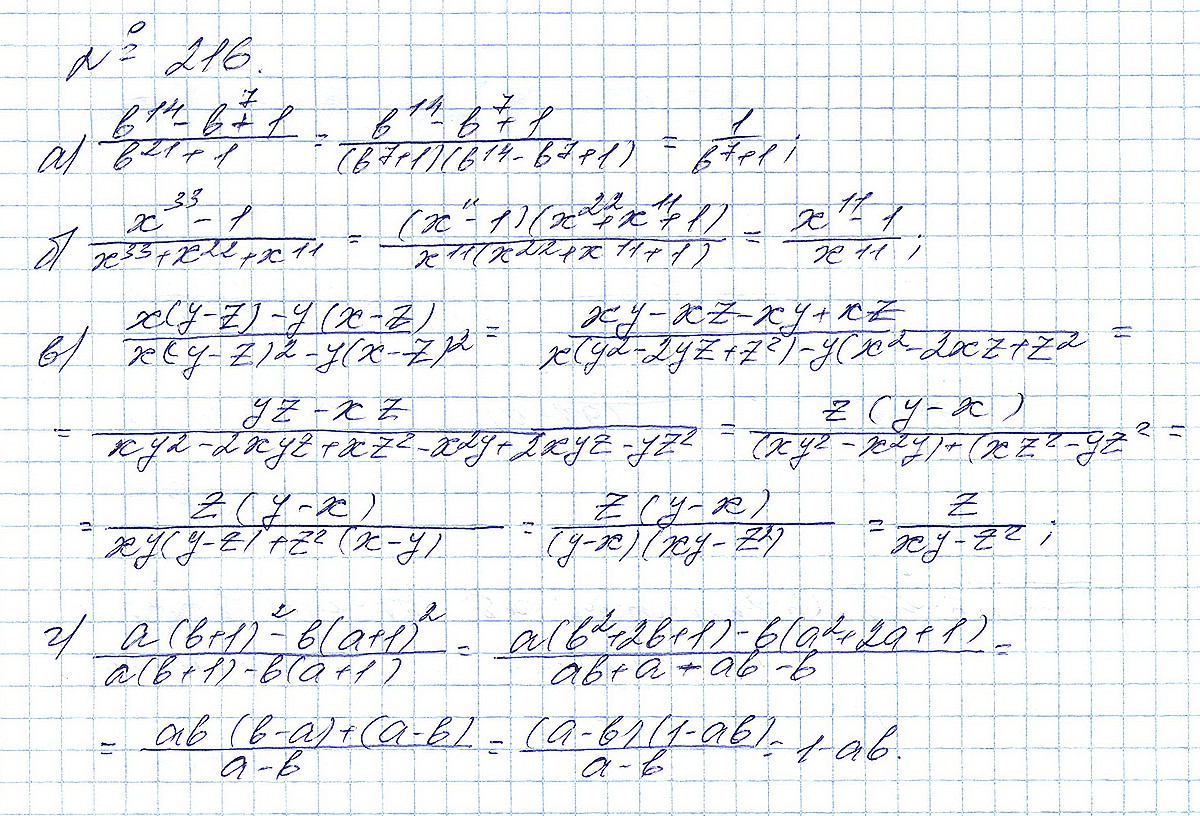 № 216.
а) (b¹⁴ - b⁷ + 1)/(b²¹ + 1) = (b¹⁴ - b⁷ + 1)/((b⁷+1)(b¹⁴ - b⁷ + 1)) = 1/(b⁷+1);
б) (x³³ - 1)/(x³³ + x²² + x¹¹) = ((x¹¹ - 1)(x²² + x¹¹ + 1))/(x¹¹(x²² + x¹¹ + 1)) = (x¹¹ - 1)/x¹¹;
в) (x(y-z) - y(x-z))/(x(y-z)² - y(x-z)²) = (xy - xz - xy + xz)/(x(y² - 2yz + z²) - y(x² - 2xz + z²) =
= (yz - xz)/(xy² - 2xyz + xz² - x²y + 2xyz - yz²) = (z(y-x))/((xy² - x²y) + (xz² - yz²) =
= (z(y-x))/(xy(y-z) + z²(x-y)) = (z(y-x))/((y-x)(xy - z²)) = z/(xy - z²);
г) (a(b+1)² - b(a+1)²)/(a(b+1) - b(a+1)) = (a(b² + 2b + 1) - b(a² + 2a + 1))/(ab + a - ab - b) =
= (ab(b-a) + (a-b))/(a-b) = ((a-b)(1-ab))/(a-b) = 1-ab.